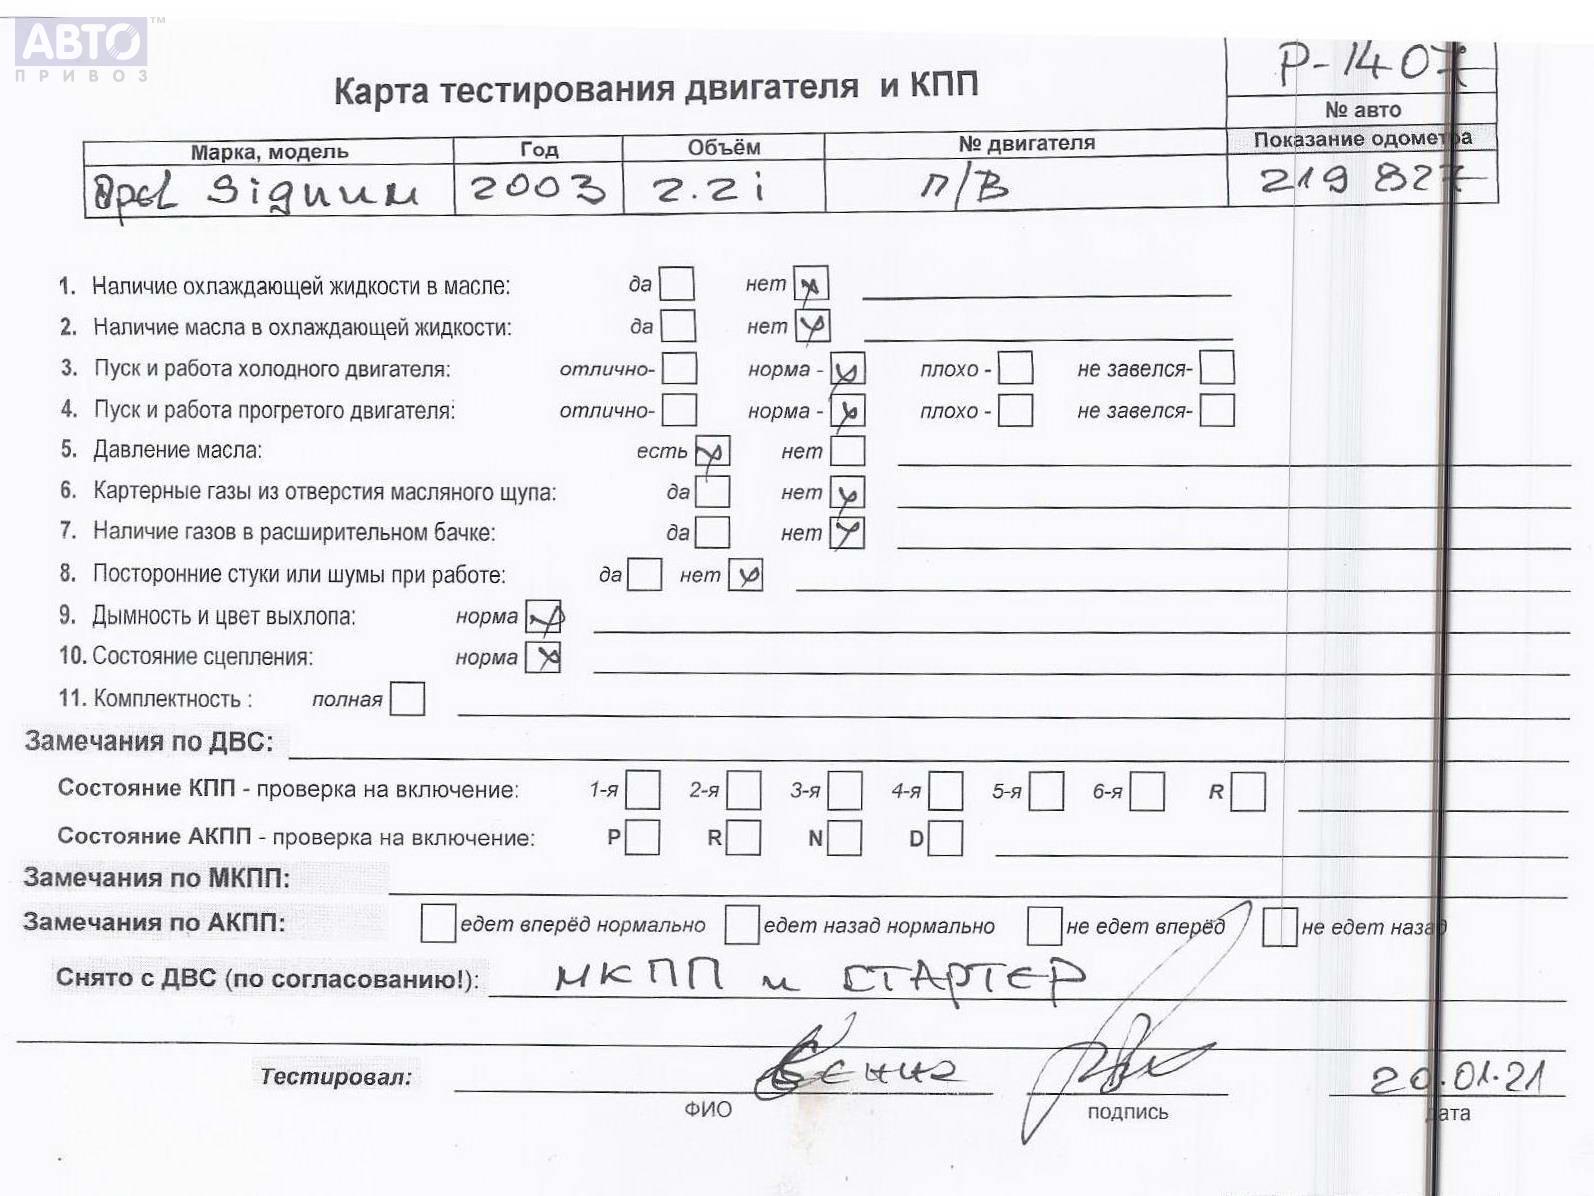 АВТО™
ПРИВОЗ
Р-1407
Карта тестирования двигателя и КПП
№ авто
Марка, модель Год Объём № двигателя Показание одометра
Opel Signum 2003 2.2i п/в 219 827
1. Наличие охлаждающей жидкости в масле: да нет
2. Наличие масла в охлаждающей жидкости: да нет
3. Пуск и работа холодного двигателя: отлично- норма - плохо - не завелся-
4. Пуск и работа прогретого двигателя: отлично- норма - плохо - не завелся-
5. Давление масла: есть нет
6. Картерные газы из отверстия масляного щупа: да нет
7. Наличие газов в расширительном бачке: да нет
8. Посторонние стуки или шумы при работе: да нет
9. Дымность и цвет выхлопа: норма
10. Состояние сцепления: норма
11. Комплектность : полная
Замечания по ДВС:
Состояние КПП - проверка на включение: 1-я 2-я 3-я 4-я 5-я 6-я R
Состояние АКПП - проверка на включение: P R N D
Замечания по МКПП:
Замечания по АКПП: едет вперёд нормально едет назад нормально не едет вперёд не едет назад
Снято с ДВС (по согласованию!): МКПП и СТАРТЕР
Тестировал: 20.01.21
ФИО подпись дата